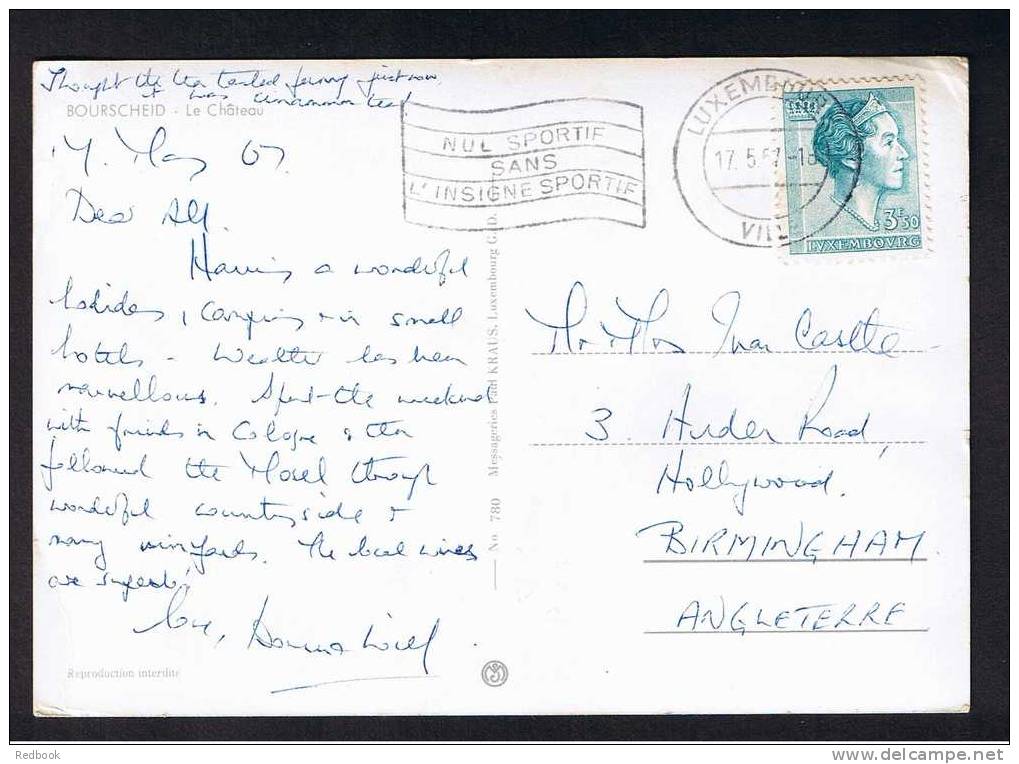 Thought the tea tasted funny just now
it was cinnamon tea!
BOURSCHEID - Le Château
17. May 67
Dear All
Having a wonderful
holiday, camping & in small
hotels - Weather has been
marvellous. Spent the weekend
with friends in Cologne & then
followed the Mosel through
wonderful countryside &
many vinyards. The local wines
are superb!
Love,
Reproduction interdite
No 780 Messageries Paul KRAUS, Luxembourg G.D.
NUL SPORTIF
SANS
L'INSIGNE SPORTIF
LUXEMBOURG
17. 5. 67 - 18
VILLE
3F50
LVXEMBOVRG
Mr & Mrs Ivan Castle
3. Road,
Hollywood.
BIRMINGHAM
ANGLETERRE
Redbook
www.delcampe.net